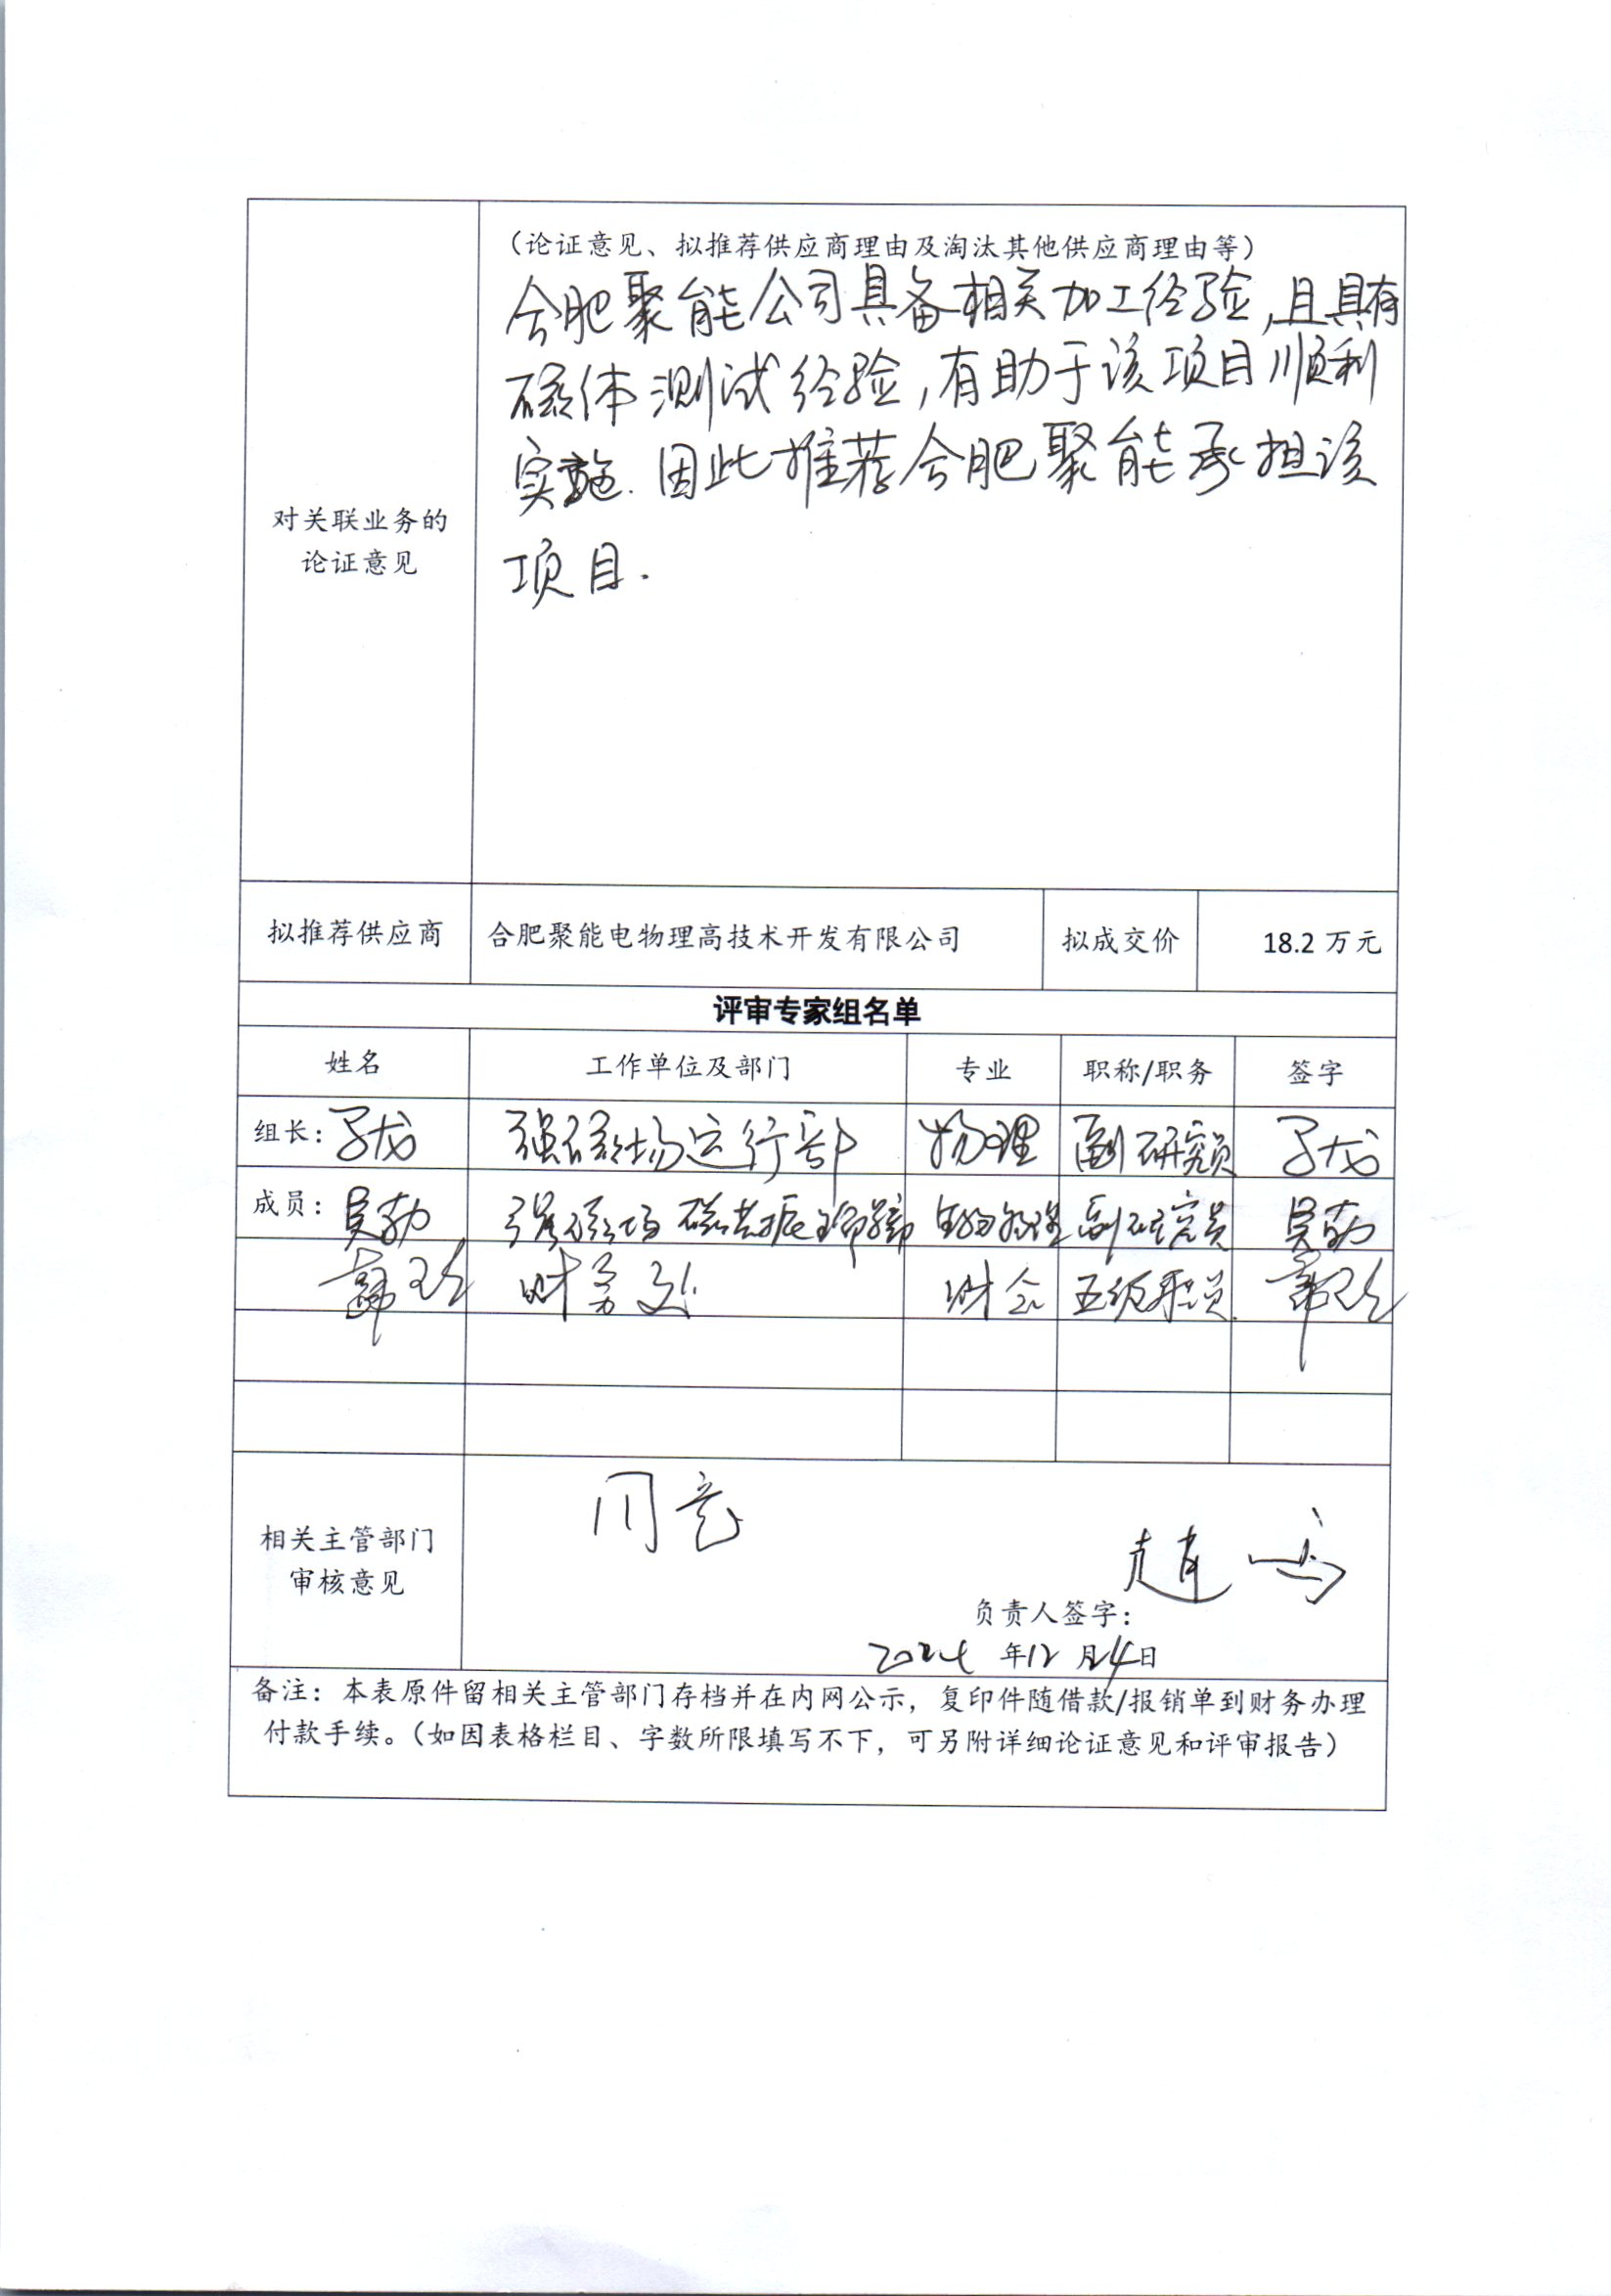 （论证意见、拟推荐供应商理由及淘汰其他供应商理由等）
合肥聚能公司具备相关加工经验，且具有
磁体测试经验，有助于该项目顺利
实施.因此推荐合肥聚能承担该
项目.
对关联业务的
论证意见
拟推荐供应商 合肥聚能电物理高技术开发有限公司 拟成交价 18.2 万元
评审专家组名单
姓名 工作单位及部门 专业 职称/职务 签字
组长： 强磁场运行部 物理 副研究员
成员：吴勃 强磁场磁共振 生物物理 副研究员 吴勃
财务处 财会 五级职员
同意
相关主管部门
审核意见
负责人签字：
2024 年12 月24日
备注：本表原件留相关主管部门存档并在内网公示，复印件随借款/报销单到财务办理
付款手续。（如因表格栏目、字数所限填写不下，可另附详细论证意见和评审报告）